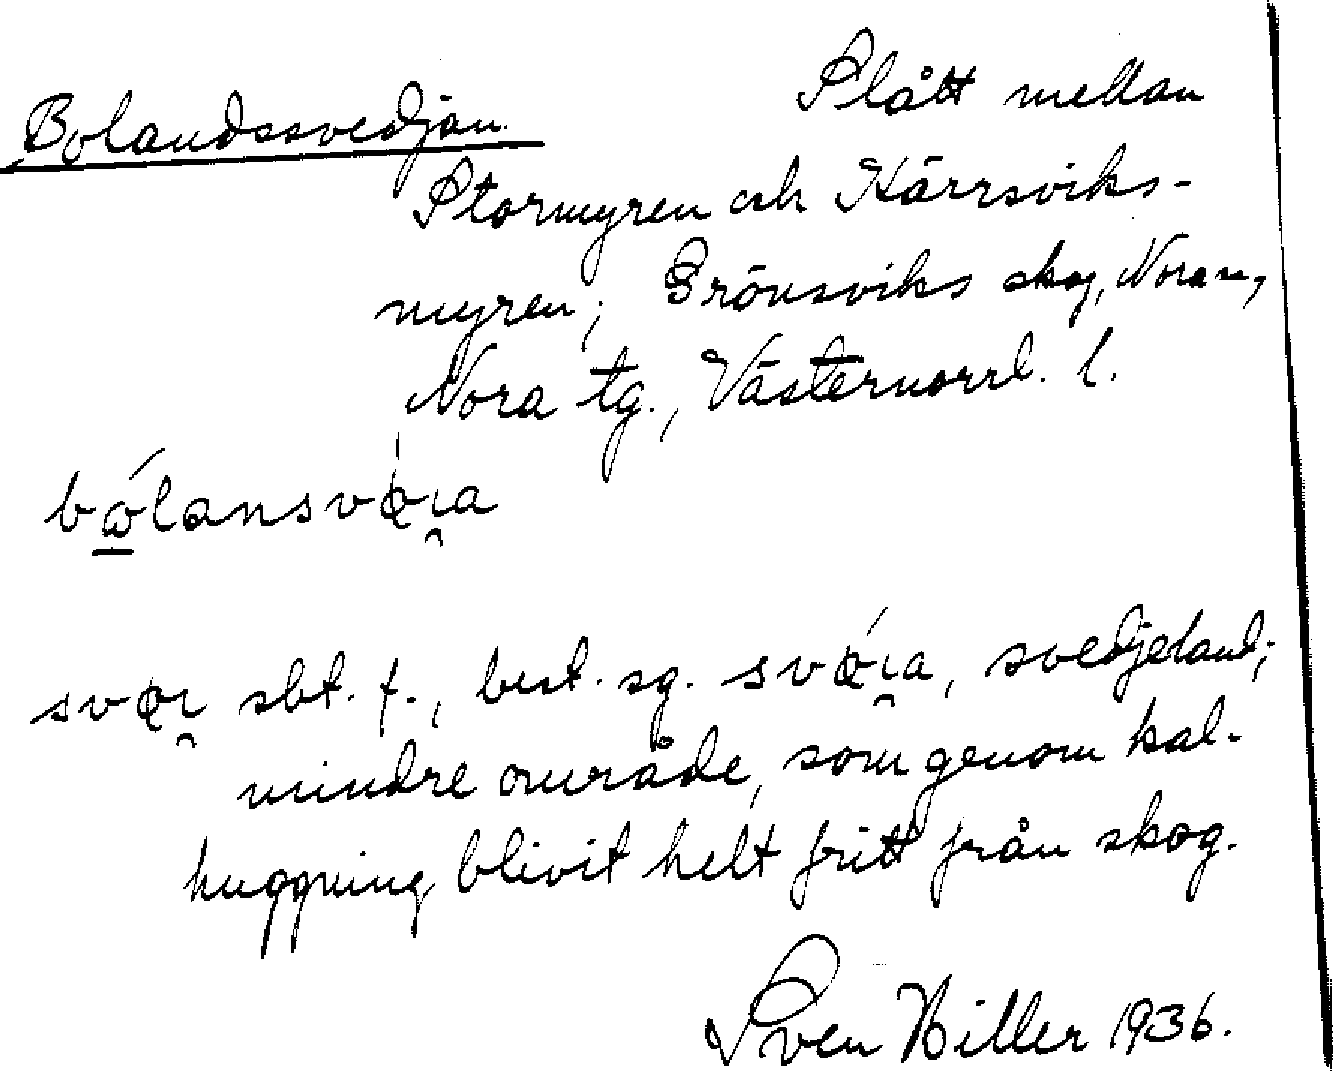 Bolandssvedjan. Slått mellan
Stormyren och Kärrsviks-
myren; Grönsviks skog, Nora sn,
Nora tg., Västernorrl. l.
sbt. f., best. sg. svedjeland;
mindre område, som genom kal-
huggning blivit helt fritt från skog.
Sven Hiller 1936.